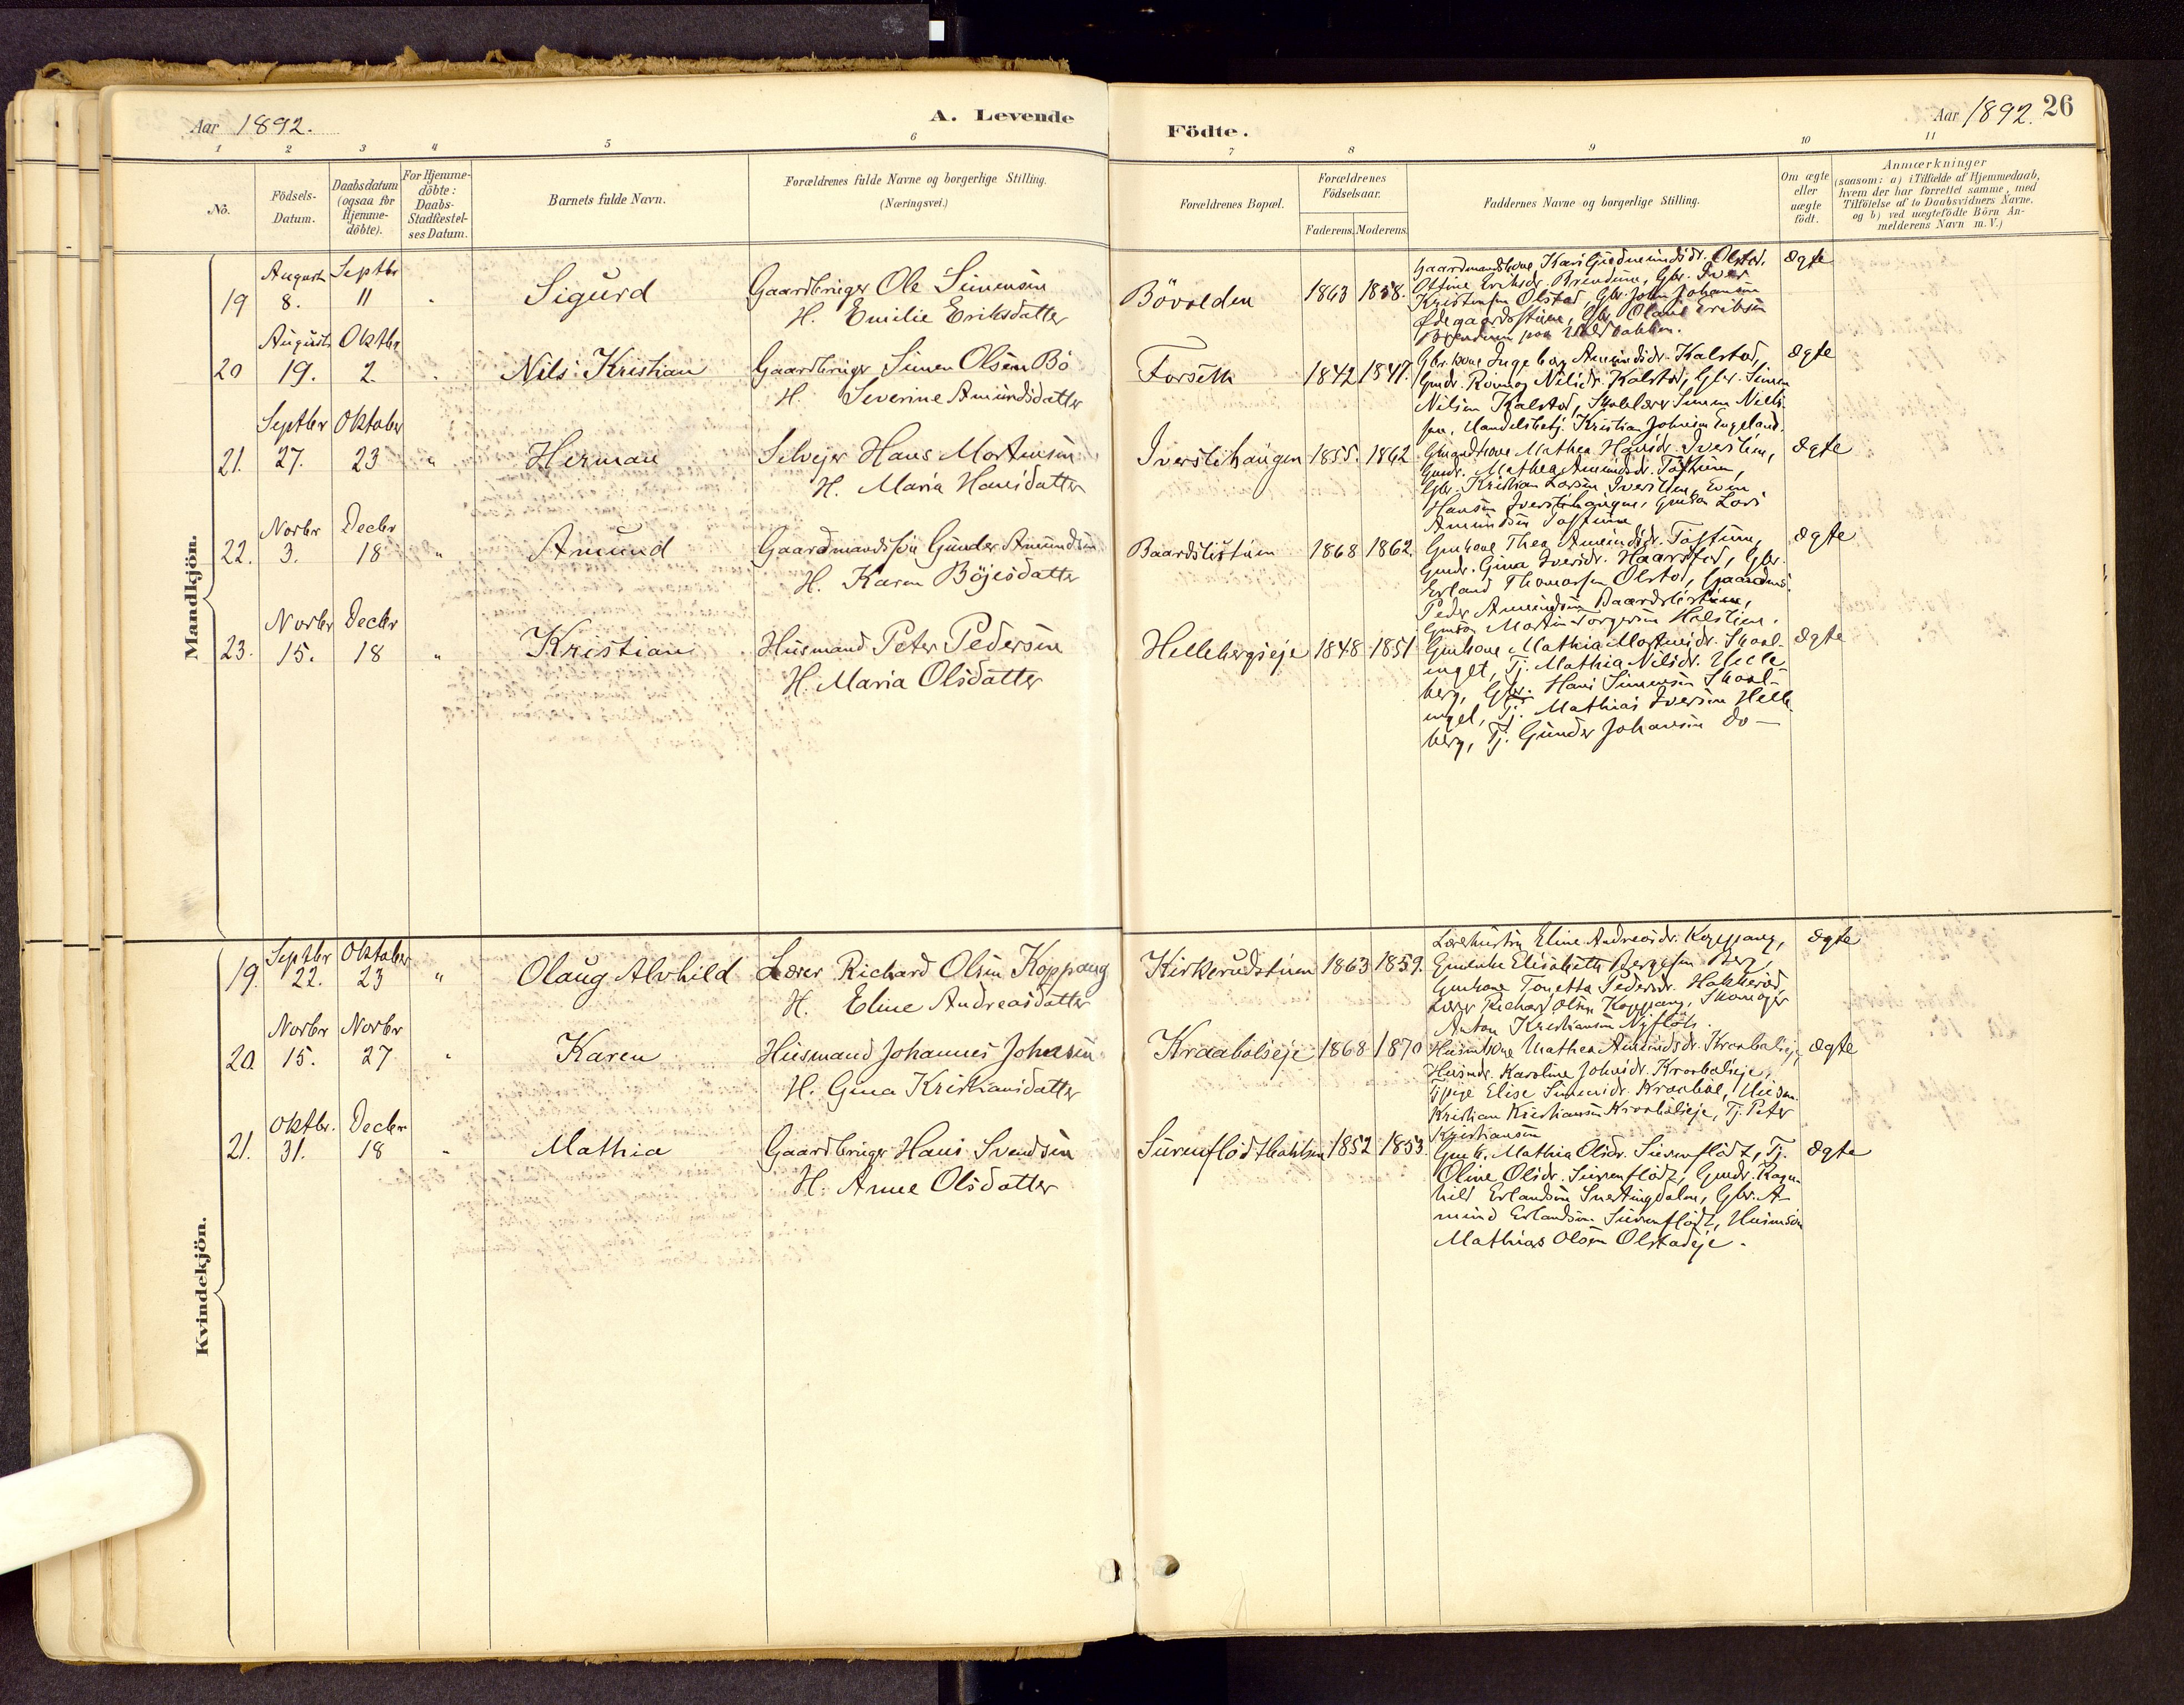 Aar 1892.
A. Levende
Födte.
Aar 1892. 26
1 2 3 4 5 6 7 8 9 10 11
No.
Födsels-
Datum.
Daabsdatum
(ogsaa for
Hjemme-
döbte).
For Hjemme-
döbte:
Daabs-
Stadfæstel-
ses Datum.
Barnets fulde Navn.
Forældrenes fulde Navne og borgerlige Stilling.
(Næringsvei.)
Forældrenes Bopæl.
Forældrenes
Födselsaar.
Faderens. Moderens.
Faddernes Navne og borgerlige Stilling.
Om ægte
eller
uægte
födt.
Anmærkninger
(saasom: a) i Tilfælde af Hjemmedaab,
hvem der har forrettet samme, med
Tilföielse af to Daabsvidners Navne.
og b) ved uægtefödte Börn An-
melderens Navn m.V.)
Mandkjön.
August Septbr
19 8. 11 Sigurd Gaardbruger Ole Simensen
H. Emilie Eriksdatter
Bövolden 1863 1858.
Gaardmandskone Kari Gudmundsdr. Olstad,
Oline Eriksdr. Brendum, Gbr. Iver
Kristensen Olstad, Gbr. John Johansen
Ødegaardsstuen, Gbr. Olaus Eriksen
ægte
August Oktbr
20 19. 2. Nils Kristian Gaardbruger Simen Olsen Bö
H. Severine Amundsdatter
Forseth 1842 1847.
Gbr.kone Ingeborg Amundsdr. Kalstad,
Gmdr. Rönnog Nilsdr. Kalstad, Gbr. Simen
Nilsen Kalstad, Skolelærer Simen Niels-
sen, Handelsbetj. Kristian Johnsen Engeland.
ægte
Septbr Oktober
21. 27. 23 " Herman Selvejer Hans Mortensen
H. Maria Hansdatter
Iverslihaugen 1855. 1862
Gmandskone Mathea Hansdr. Iverslien,
Gmdr. Mathea Amundsdr. Toftum,
Gbr. Kristian Larsen Iverslien, Even
Hansen Iverslihaugen, Gmsøn Lars
Amundsen Toftum
ægte
Novbr Decbr
22. 3. 18 " Amund Gaardmandssøn Gunder Amundsen
H. Karen Böjesdatter
Baardslistuen 1868 1862.
Gmkone Thea Amundsdr. Toftum,
Gmdr. Gina Iversdr. Haarstad, Gbr.
Erland Thomassen Olstad, Gaardms.
Peder Amundsen Baardslistuen,
Gmsøn Martin Torgersen Holslien.
ægte
Novbr Decbr
23. 15. 18 " Kristian Husmand Peter Pedersen
H. Maria Olsdatter
Hellebergseje 1848 1851
Gmkone Mathia Mortensdr. Skaal-
enget, Tj. Mathia Nilsdr. Helle-
berg, Gbr. Hans Simensen Skaal-
enget, Tj. Mathias Iversen Helle-
berg, Tj. Gunder Johansen do —
ægte
Kvindekjön.
Septbr Oktober
19. 22. 23 " Olaug Alvhild Lærer Richard Olsen Koppang
H. Eline Andreasdatter
Kirkerudstuen 1863 1859.
Lærerhustru Eline Andreasdr. Koppang,
Gmenke Elisabeth Bergesen Berg,
Gmkone Tonetta Pedersdr. Hakkerud,
Lærer Richard Olsen Koppang, Skomager
Anton Kristiansen Nyflöt.
ægte
Novbr Novbr
20. 15. 27 Karen Husmand Johannes Johnsen
H. Gina Kristiansdatter
Kraabölseje 1868 1870
Husmkone Mathea Amundsdr. Kraabölseje,
Husmdr. Karoline Johnsdr. Kraabölseje,
Tjpige Elise Simensdr. Kraaböl, Husm.
Kristian Kristiansen Kraabölseje, Tj. Peter
Kristiansen
ægte
Oktbr. Decbr
21. 31. 18 Mathia Gaardbruger Hans Svendsen
H. Anne Olsdatter
Surenflödtbakken 1852 1853.
Gmk. Mathia Olsdr. Surenflödt, Tj.
Oline Olsdr. Surenflödt, Gmdr. Ragn-
hild Erlandsen Svartingdalen, Gbr. A-
mund Erlandsen Surenflödt, Husmsøn
Mathias Olsen Olstadeje.
ægte